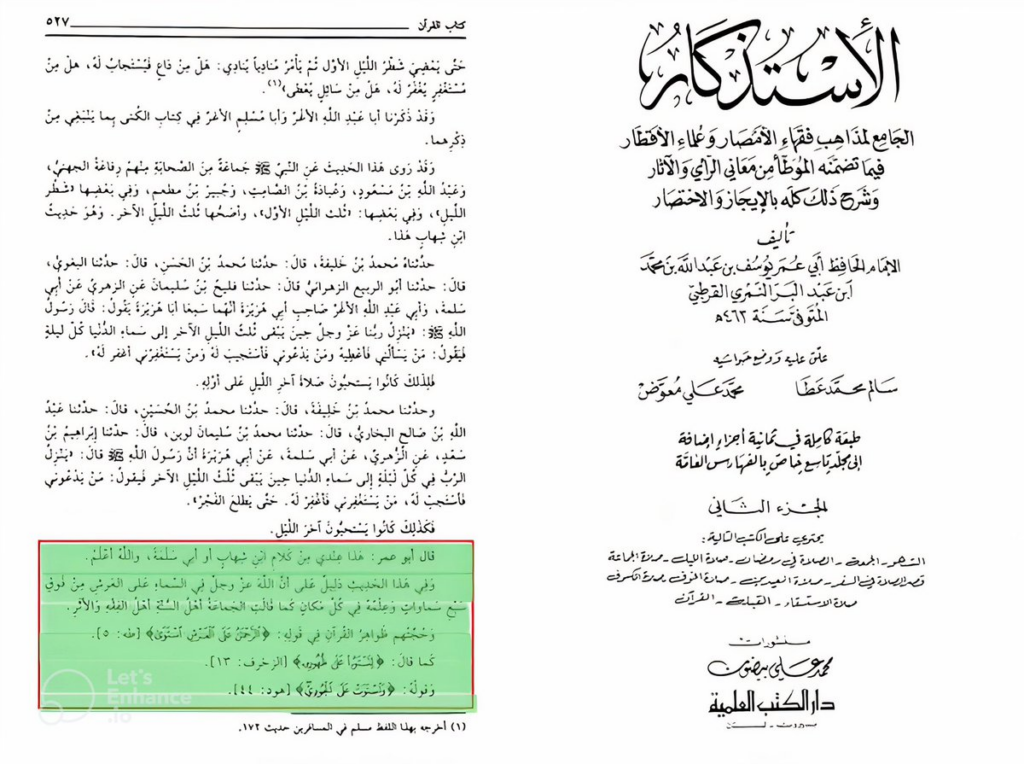 كتاب القرآن ٥٢٧
حَتَّى يَمْضِيَ شَطْرُ اللَّيْلِ الأوَّل ثُمَّ يَأْمُرُ مُنَادِياً يُنَادِي: هَلْ مِنْ دَاعٍ فَيُسْتَجابُ لَهُ، هل مِنْ
مُسْتَغْفِرٍ يُغْفَرُ لَهُ، هَلْ مِنْ سَائِلٍ يُعْطَى»(١).
وَقَدْ ذَكَرْنا أبا عَبْدِ اللَّهِ الأغَرَّ وَأبا مُسْلِمٍ الأغرَّ فِي كِتابِ الكُنَى بِما يَنْبَغِي مِنْ
ذِكْرِهما.
وَقَدْ رَوى هَذا الحَدِيثَ عَنِ النَّبِيِّ ﷺ جَمَاعَةٌ مِنَ الصَّحابَةِ مِنْهُمْ رِفَاعَةُ الجهنيُّ،
وَعَبْدُ اللَّهِ بْنُ مَسْعُودٍ، وَعُبَادَةُ بْنُ الصَّامِتِ، وَجُبَيرُ بْنُ مطعمٍ، وَفِي بَعْضِها «شَطْر
اللَّيلِ»، وَفِي بَعْضِها: «ثُلث اللَّيْلِ الأوَّل»، وأصَحُّها ثُلثُ اللَّيلِ الآخر. وَهُوَ حَدِيثُ
ابْنِ شِهابٍ هَذا.
حدَّثناهُ مُحمدُ بْنُ خَلِيفةَ، قالَ: حدَّثنا مُحمدُ بْنُ الحَسَنِ، قالَ: حدَّثنا البغويُّ،
قالَ: حدَّثنا أبُو الربيع الزهرانيُّ قالَ: حدَّثنا فليحُ بْنُ سُلَيمانَ عَنِ الزهريِّ عَنْ أبِي
سلمةَ، وَأبِي عَبْدِ اللَّهِ الأغَرِّ صَاحِبِ أبِي هُرَيْرَةَ أنَّهُما سَمِعَا أبَا هُرَيْرَةَ يَقُولُ: قَالَ رَسُولُ
اللَّهِ ﷺ: «يَنْزِلُ ربُّنا عَزَّ وجلَّ حِينَ يَبْقَى ثُلُثُ اللَّيلِ الآخر إلى سَماءِ الدُّنْيا كُلَّ ليلةٍ
فَيَقُولُ: مَنْ يَسألُني فأُعْطِيهُ ومَنْ يَدْعُوني فَأسْتَجِيبَ لَهُ وَمنْ يَسْتَغْفِرُني أغفر لَهُ».
فَلِذلكَ كَانُوا يَستحبُّونَ صَلاةَ آخِرِ اللَّيلِ عَلى أوَّلِهِ.
وحدَّثنا محمدُ بْنُ خَلِيفَةَ، قالَ: حدَّثنا محمدُ بْنُ الحُسَيْنِ، قالَ: حدَّثنا عَبْدُ
اللَّهِ بْنُ صَالحٍ البخاريُّ، قالَ: حدَّثنا محمدُ بْنُ سُليمانَ لوين، قالَ: حدَّثنا إبْراهِيمُ بْنُ
سَعْدٍ، عَنِ الزُّهريِّ، عَنْ أبِي سلمةَ، عَنْ أبِي هُرَيْرَةَ أنَّ رَسُولَ اللَّهِ ﷺ قالَ: «يَنْزِلُ
الرَّبُّ فِي كُلِّ لَيْلَةٍ إلى سَماءِ الدُّنيا حِينَ يَبْقى ثُلْثُ اللَّيْلِ الآخر فَيقولُ: مَنْ يَدْعُونِي
فَأسْتَجِبْ لَهُ، مَنْ يَسْتَغْفِرني فَأغْفِرْ لَهُ. حَتَّى يَطلعَ الفَجْرُ».
فَكَذلِكَ كَانُوا يَسْتحبُّونَ آخرَ اللَّيْلِ.
قال أبو عمر: هَذا عِنْدي مِنْ كَلامِ ابْنِ شِهابٍ أو أبِي سَلَمَةَ، واللَّهُ أعْلَمُ.
وَفِي هَذا الحَدِيثِ دَلِيلٌ عَلى أنَّ اللَّهَ عزَّ وجلَّ فِي السَّماءِ عَلى العَرْشِ مِنْ فَوقِ
سَبْعِ سَماواتٍ وَعِلْمُهُ فِي كُلِّ مَكانٍ كَما قَالَتِ الجَماعَةُ أهْلُ السُّنَّةِ أهْلُ الفِقْهِ وَالأثَرِ.
وَحُجَّتُهم ظَواهِرُ القُرآنِ فِي قَولِهِ: ﴿الرَّحْمَنُ عَلَى الْعَرْشِ اسْتَوَى﴾ [طه: ٥].
كَما قالَ: ﴿لِتَسْتَوُوا عَلَى ظُهُورِهِ﴾ [الزخرف: ١٣].
وَقولُهُ: ﴿وَاسْتَوَتْ عَلَى الْجُودِيِّ﴾ [هود: ٤٤].
Let's
Enhance
.io
(١) أخرجه بهذا اللفظ مسلم في المسافرين حديث ١٧٢.
الأستذكار
الجامع لمذاهب فقهاء الأمصار وعلماء الأقطار
فيما تضمنه الموطأ من معاني الرأي والآثار
وشرح ذلك كله بالإيجاز والاختصار
تأليف
الإمام الحافظ أبي عمر يوسف بن عبد الله بن محمد
ابن عبد البر النمري القرطبي
المتوفى سنة ٤٦٣ھ
علق عليه ووضع حواشيه
سالم محمد عطا محمد علي معوض
طبعة كاملة في ثمانية أجزاء إضافة
إلى مجلد تاسع خاص بالفهارس العامة
الجزء الثاني
يحتوي على الكتب التالية:
السهو - الجمعة - الصلاة في رمضان - صلاة الليل - صلاة الجماعة
قصر الصلاة في السفر - صلاة العيدين - صلاة الخوف - صلاة الكسوف
صلاة الاستسقاء - القبلة - القرآن
منشورات
محمد علي بيضون
دار الكتب العلمية
بيروت - لبنان